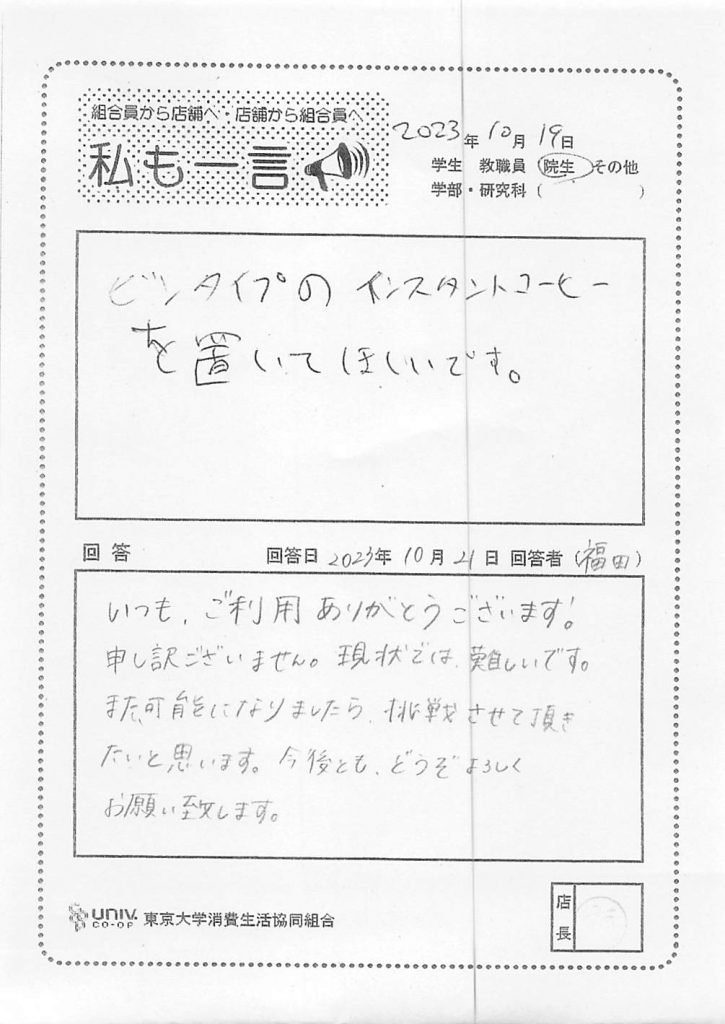 組合員から店舗へ・店舗から組合員へ
私も一言
2023年10月19日
学生 教職員 院生 その他
学部・研究科( )
ビンタイプの インスタントコーヒー
を置いてほしいです。
回答 回答日 2023年10月21日 回答者(福田)
いつも、ご利用ありがとうございます!
申し訳ございません。現状では、難しいです。
また、可能になりましたら、挑戦させて頂き
たいと思います。今後とも、どうぞよろしく
お願い致します。
UNIV. CO-OP 東京大学消費生活協同組合
店長